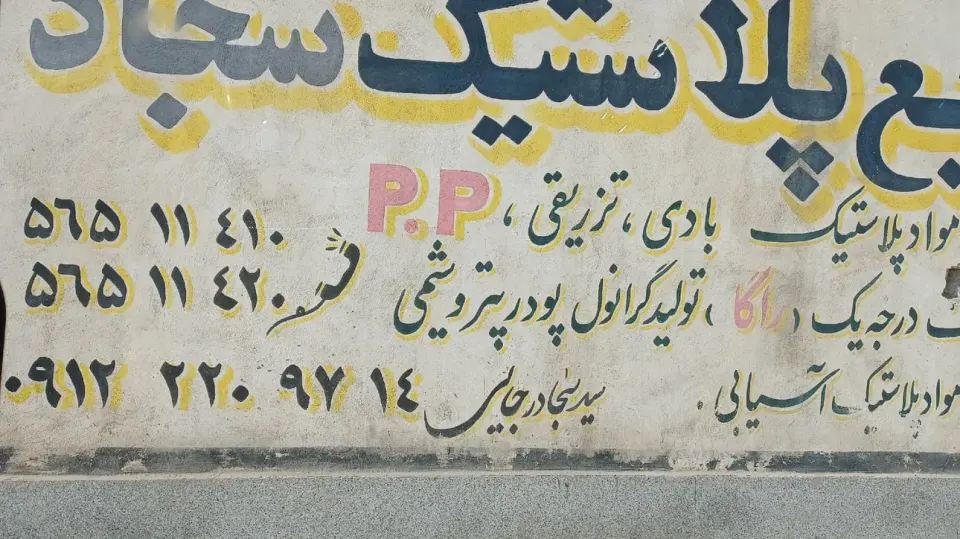 پلاستیک سجاد
مواد پلاستیک بادی، تزریقی، P.P
۵۶۵ ۱۱ ۴۱۰
درجه یک (راگا) تولید گرانول پودر پتروشیمی
۵۶۵ ۱۱ ۴۲۰
مواد پلاستیک آسیابی. سید سجاد رجایی
۰۹۱۲ ۲۲۰ ۹۷ ۱۴